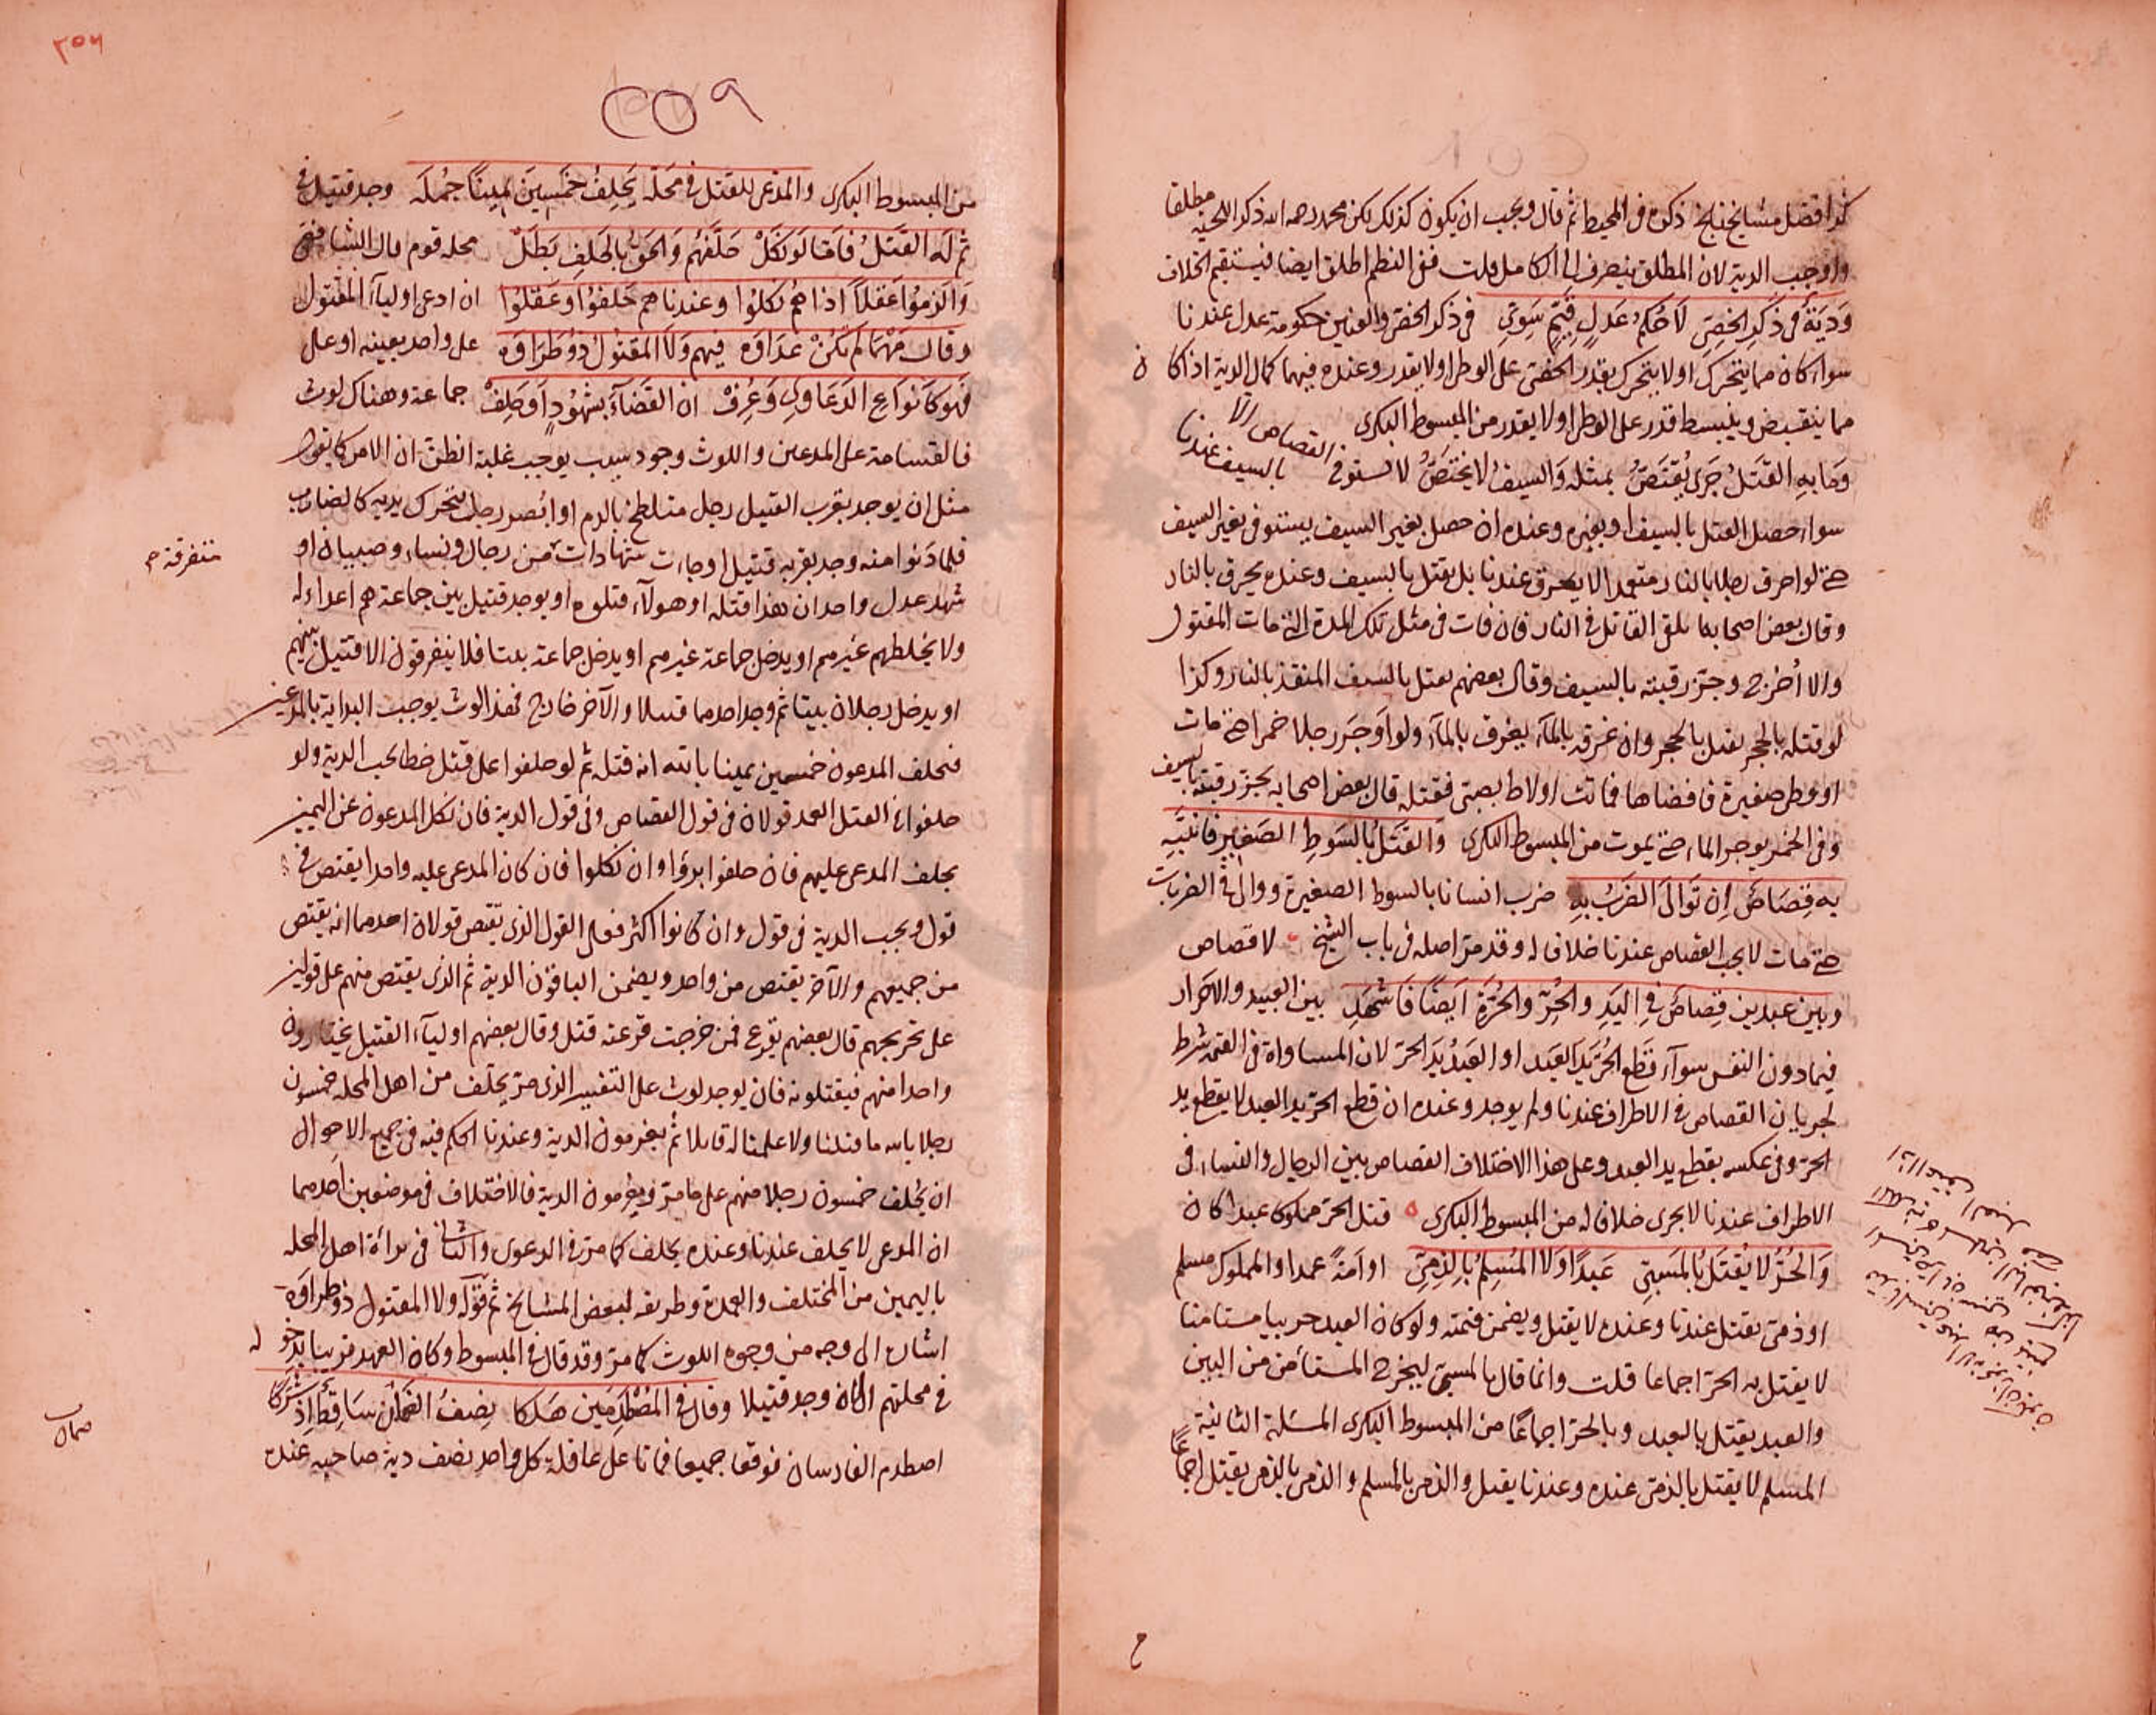 كذا افضل مشايخ بلخ ذكره في المحيط ثم قال ويجب ان يكون كذلك لكن محمد رحمه الله ذكر اللحية مطلقا
واوجب الدية لان المطلق ينصرف الى الكامل قلت ففي النظم اطلق ايضا فيستقيم الخلاف
وَدِيَةٌ في ذَكَرِ الخَصِيّ لَا حُكمُ عَدلٍ قَيِّمٍ سَوِيّ في ذكر الخصي والعنين حكومة عدل عندنا
سواء كان مما يتحرك او لا يتحرك يقدر الخصي على الوطء او لا يقدر وعنده فيهما كمال الدية اذا كان
مما ينقبض وينبسط قدر على الوطء او لا يقدر من المبسوط البكري
وَمَا بِهِ القَتلُ جَرَى يُقتَصُّ بمثله وَالسيفُ لا يختَصُّ لا يستوفى القصاص الا بالسيف عندنا
سواء حصل القتل بالسيف او بغيره وعنده ان حصل بغير السيف يستوفى بغير السيف
حتى لو احرق رجلا بالنار متعمدا لا يحرق عندنا بل يقتل بالسيف وعنده يحرق بالنار
وقال بعض اصحابه يلقى القاتل في النار فان مات في مثل تلك المدة التي مات المقتول
والا أخرج وجز رقبته بالسيف وقال بعضهم يقتل بالسيف المنقذ بالنار وكذا
لو قتله بالحجر يقتل بالحجر وان غرقه بالماء يغرق بالماء ولو اوجر رجلا خمرا حتى مات
او وطئ صغيرة فافضاها فماتت او لاط بصبي فقتله قال بعض اصحابه يجز رقبته بالسيف
وفي الخمر يوجر الماء حتى يموت من المبسوط البكري وَالقَتلُ بِالسَوطِ الصَغيرِ فَانتَبِه
به قِصَاصٌ اِن تَوَالَى الضَربُ بِهِ ضرب انسانا بالسوط الصغير ووالى في الضربات
حتى مات لا يجب القصاص عندنا خلافا له وقد مر اصله في باب الشيخ لا قصاص
وبين عبدين قِصاصٌ فِي اليَدِ والحُرّ والحُرَّةِ ايضًا فَاشهَدِ بين العبيد والاحرار
فيما دون النفس سواء قَطع الحُرّ يَدَ العَبد او العَبدُ يَدَ الحرّ لان المساواة في القيمة شرط
لجريان القصاص في الاطراف عندنا ولم يوجد وعنده ان قطع الحر يد العبد لا يقطع يد
الحر وفي عكسه يقطع يد العبد وعلى هذا الاختلاف القصاص بين الرجال والنساء في
الاطراف عندنا لا يجري خلافا له من المبسوط البكري قتل الحر مملوكا عبدا كان
وَالحُرُّ لا يُقتَلُ بالمَسبِيّ عَبدًا وَلا المُسلِمُ بِالذِمّيّ او اَمَةً عمدا والمملوك مسلم
او ذمي يقتل عندنا وعنده لا يقتل ويضمن قيمته ولو كان العبد حربيا مستامنا
لا يقتل به الحر اجماعا قلت وانما قال بالمسبي ليخرج المستأمن من البين
والعبد يقتل بالعبد وبالحر اجماعًا من المبسوط البكري المسئلة الثانية
المسلم لا يقتل بالذمي عنده وعندنا يقتل والذمي بالمسلم والذمي بالذمي يقتل اجماعًا
٢٥٩
٣٥٦
من المبسوط البكري والمدّعي للقتل في مَحلّة يَحلِفُ خَمسِينَ يمينًا جُملَه وجد قتيل في
ثم لَه القَتلُ فَامَّا لَو نَكَل حَلَّفَهُم وَالحَقُّ بِالحَلِفِ بَطَل محلة قوم قال الشافعي
وَاُلزِمُوا عَقلاً اذا هُم نكلُوا وعندنا هم حَلَفُوا وَعَقَلُوا ان ادعى اولياء المقتول
وقال مَهمَا لَم تَكُن عَدَاوَه فيهم وَلَا المقتُولُ ذُو طَرَاوَه على واحد بعينه او على
فَهوَ كَاَنوَاعِ الدَعَاوِي وَعُرِف ان القَضَآءَ بشهُودٍ اَو حَلِف جماعة وهناك لوث
فالقسامة على المدعين واللوث وجود سبب يوجب غلبة الظن ان الامر كما يقول
مثل ان يوجد بقرب القتيل رجل متلطخ بالدم او ابصر رجلا يتحرك يديه كالضارب
فلما دنوا منه وجد بقربه قتيل او جاءت شهادات من رجال ونساء وصبيان او
متفرقة صح
شهد عدل واحد ان هذا قتله او هولاء قتلوه او يوجد قتيل بين جماعة هم اعداء له
ولا يخلطهم غيرهم او يدخل جماعة غيرهم او يدخل جماعة بيتا فلا يتفرقون الا قتيل بينهم
او يدخل رجلان بيتا ثم وجد احدهما قتيلا والآخر خارج فهذا لوث يوجب البداية بالمدعين
فحلف المدعون خمسين يمينا بالله انه قتله ثم لو حلفوا على قتل خطا يجب الدية ولو
حلفوا على القتل العمد قولان في قول القصاص وفي قول الدية فان نكل المدعون عن اليمين
يحلف المدعى عليهم فان حلفوا ابرؤا وان نكلوا فان كان المدعى عليه واحدا يقتص في
قول ويجب الدية في قول وان كانوا اكثر فعلى القول الذي يقتص قولان احدهما انه يقتص
من جميعهم والآخر يقتص من واحد ويضمن الباقون الدية ثم الذي يقتص منهم على قولين
على تخريجهم قال بعضهم يقرع فمن خرجت قرعته قتل وقال بعضهم اولياء القتيل يختارون
واحدا منهم فيقتلونه فان لم يوجد لوث على التفسير الذي مر يحلف من اهل المحلة خمسون
رجلا بالله ما قتلنا ولا علمنا له قاتلا ثم يغرمون الدية وعندنا الحكم فيه في جميع الاحوال
ان يحلف خمسون رجلا منهم على ما مر ويغرمون الدية فالاختلاف في موضعين احدهما
ان المدعي لا يحلف عندنا وعنده يحلف كما مر في الدعوى والثاني في براءة اهل المحلة
باليمين من المختلف والعمدة وطريقه لبعض المشايخ ثم قوله ولا المقتول ذو طراوه
اشارة الى وجه من وجوه اللوث كما مر وقد قال في المبسوط وكان العهد قريبا بدخوله
في محلتهم الى ان وجد قتيلا وقال في المُصطَدِمَين هَلكا نِصفُ الضَمَانِ سَاقِطٌ اِذ شَرَكَا
اصطدم الفارسان فوقعا جميعا فماتا على عاقلة كل واحد نصف دية صاحبه عنده